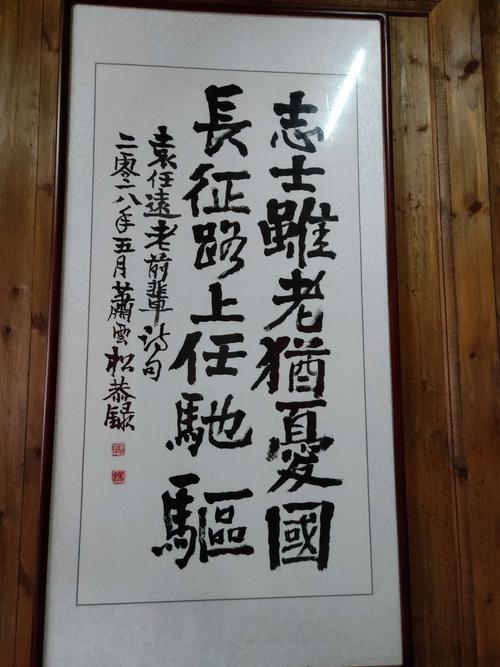 志士雖老猶憂國
長征路上任馳驅
袁任遠老前輩詩句
二零一八年五月蕭雲松恭錄